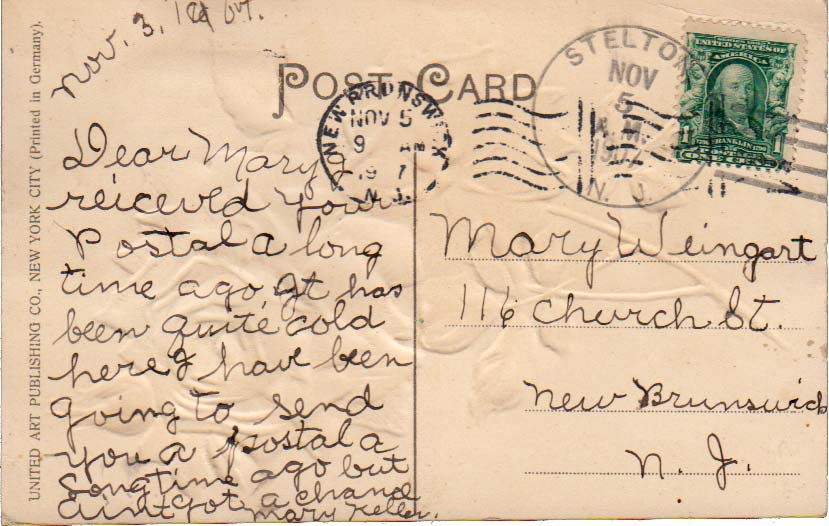 Nov. 3, 1907.
POST CARD
NEW BRUNSWICK
NOV 5
9 AM
19 7
N.J.
STELTON
NOV
5
A.M.
1907
N. J.
UNITED STATES OF
AMERICA
FRANKLIN
1 1
POSTAGE
ONE CENT
UNITED ART PUBLISHING CO., NEW YORK CITY (Printed in Germany).
Dear Mary I
reiceved your
Postal a long
time ago, It has
been quite cold
here I have been
going to send
you a postal a
longtime ago but
aint got a chance
Mary Keller.
Mary Weingart
116 Church St.
New Brunswick
N. J.